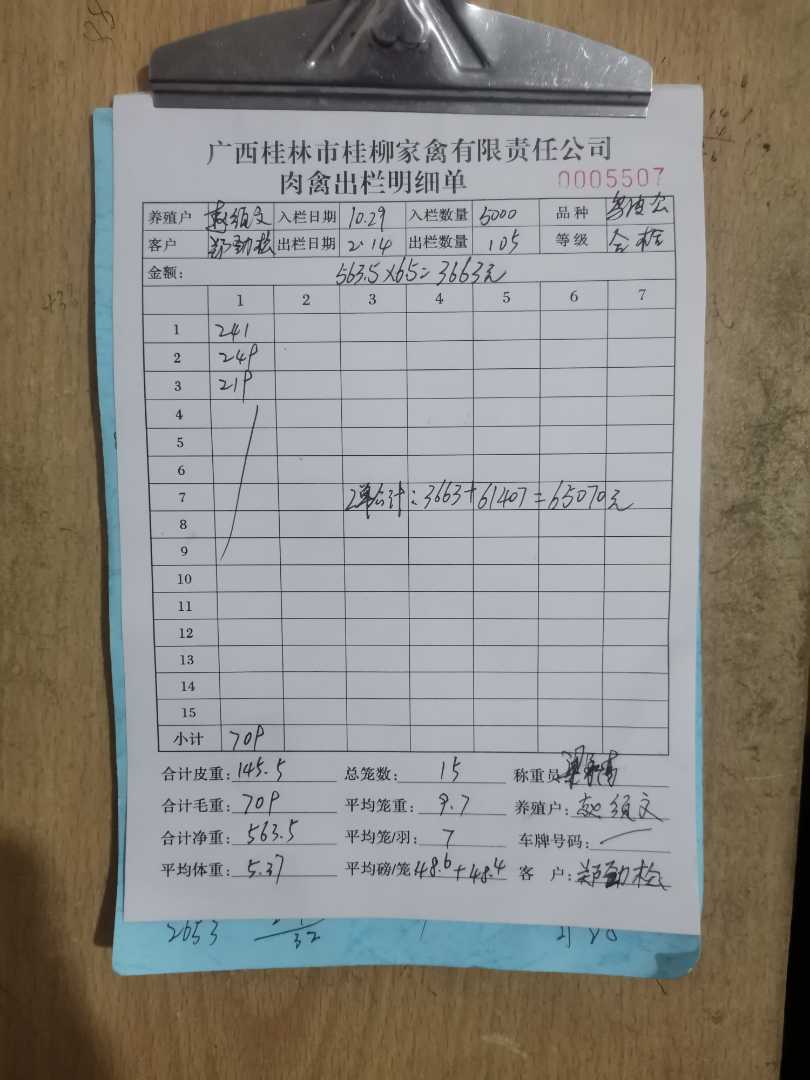 广西桂林市桂柳家禽有限责任公司
肉禽出栏明细单 0005507
养殖户 赵须文 入栏日期 10.29 入栏数量 5000 品种
客户 郑劲松 出栏日期 2.14 出栏数量 105 等级
金额: 563.5×65=3663元
1 2 3 4 5 6 7
1 241
2 249
3 219
4
5
6
7 2单合计:3663+61407=65070元
8
9
10
11
12
13
14
15
小计 709
合计皮重: 145.5 总笼数: 15 称重员
合计毛重: 709 平均笼重: 9.7 养殖户: 赵须文
合计净重: 563.5 平均笼/羽: 7 车牌号码:
平均体重: 5.37 平均磅/笼 48.6+48.4 客 户: 郑劲松
2653 32